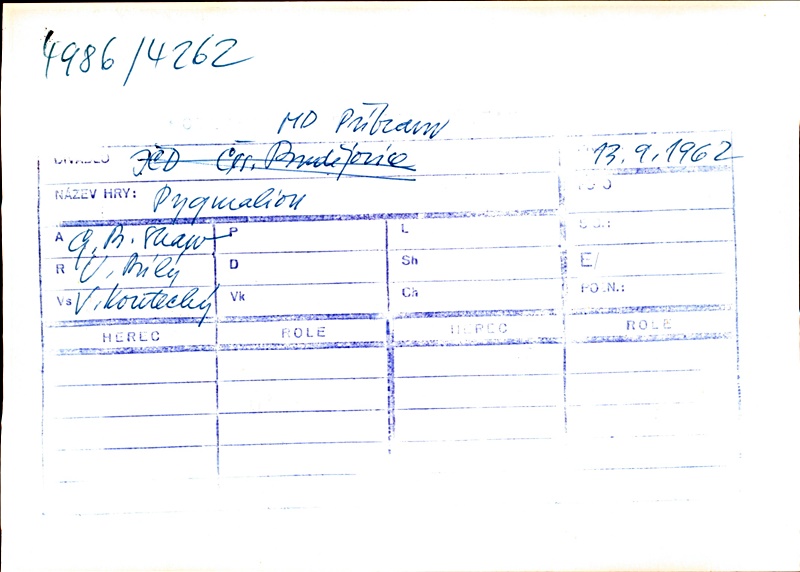 4986/4262
MD Příbram
DIVADLO JČD Čes. Budějovice 13.9.1962
NÁZEV HRY: Pygmalion
A G. B. Shaw P L
R V. Bílý D Sh E/
Vs V. Koutecký Vk Ch POZN.:
HEREC ROLE HEREC ROLE